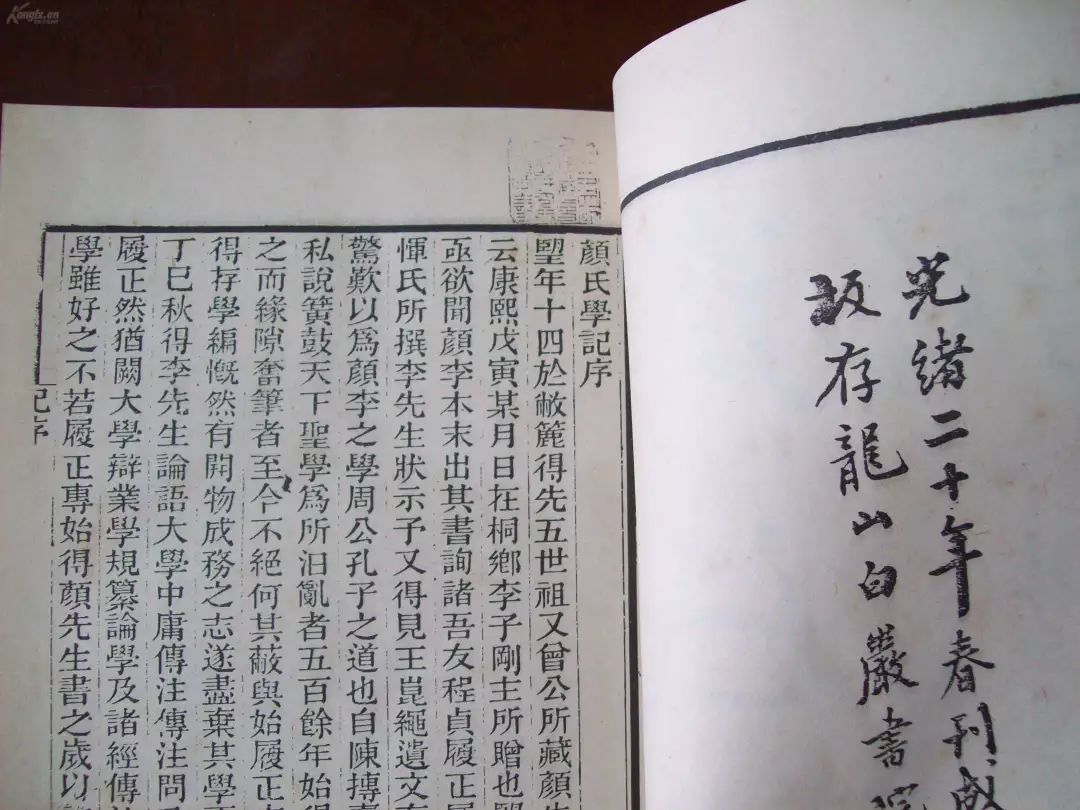 光緒二十年春刊
坂存龍山白巖書院
顏氏學記序
朢年十四於敝簏得先五世祖又曾公所藏顏
云康熙戊寅某月日在桐鄉李子剛主所贈也
亟欲聞顏李本末出其書詢諸吾友程貞履正
惲氏所撰李先生狀示予又得見王崑繩遺文
驚歎以爲顏李之學周公孔子之道也自陳摶
私說簧鼓天下聖學爲所汨亂者五百餘年始
之而緣隙奮筆者至今不絕何其蔽與始履正
得存學編慨然有開物成務之志遂盡棄其學
丁巳秋得李先生論語大學中庸傳注傳注問
履正然猶闕大學辯業學規纂論學及諸經傳
學雖好之不若履正專始得顏先生書之歲以
記序
Kongfz.cn